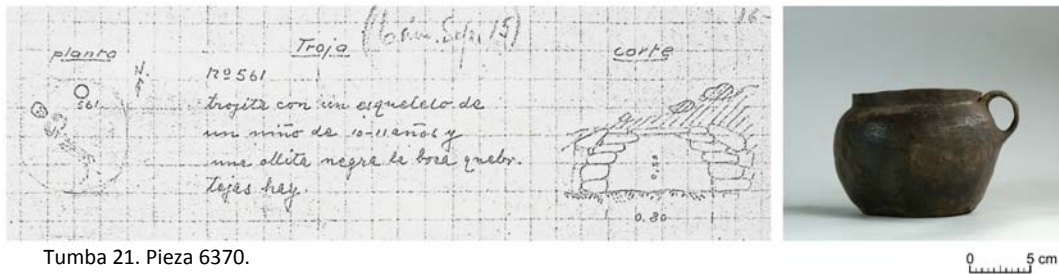 16-
planta
Troja
corte
N.
561
Nº 561
trojita con un esqueleto de
un niño de 10-11 años y
una ollita negra la boca quebr.
tejas hay.
0,80
Tumba 21. Pieza 6370.
0 5 cm